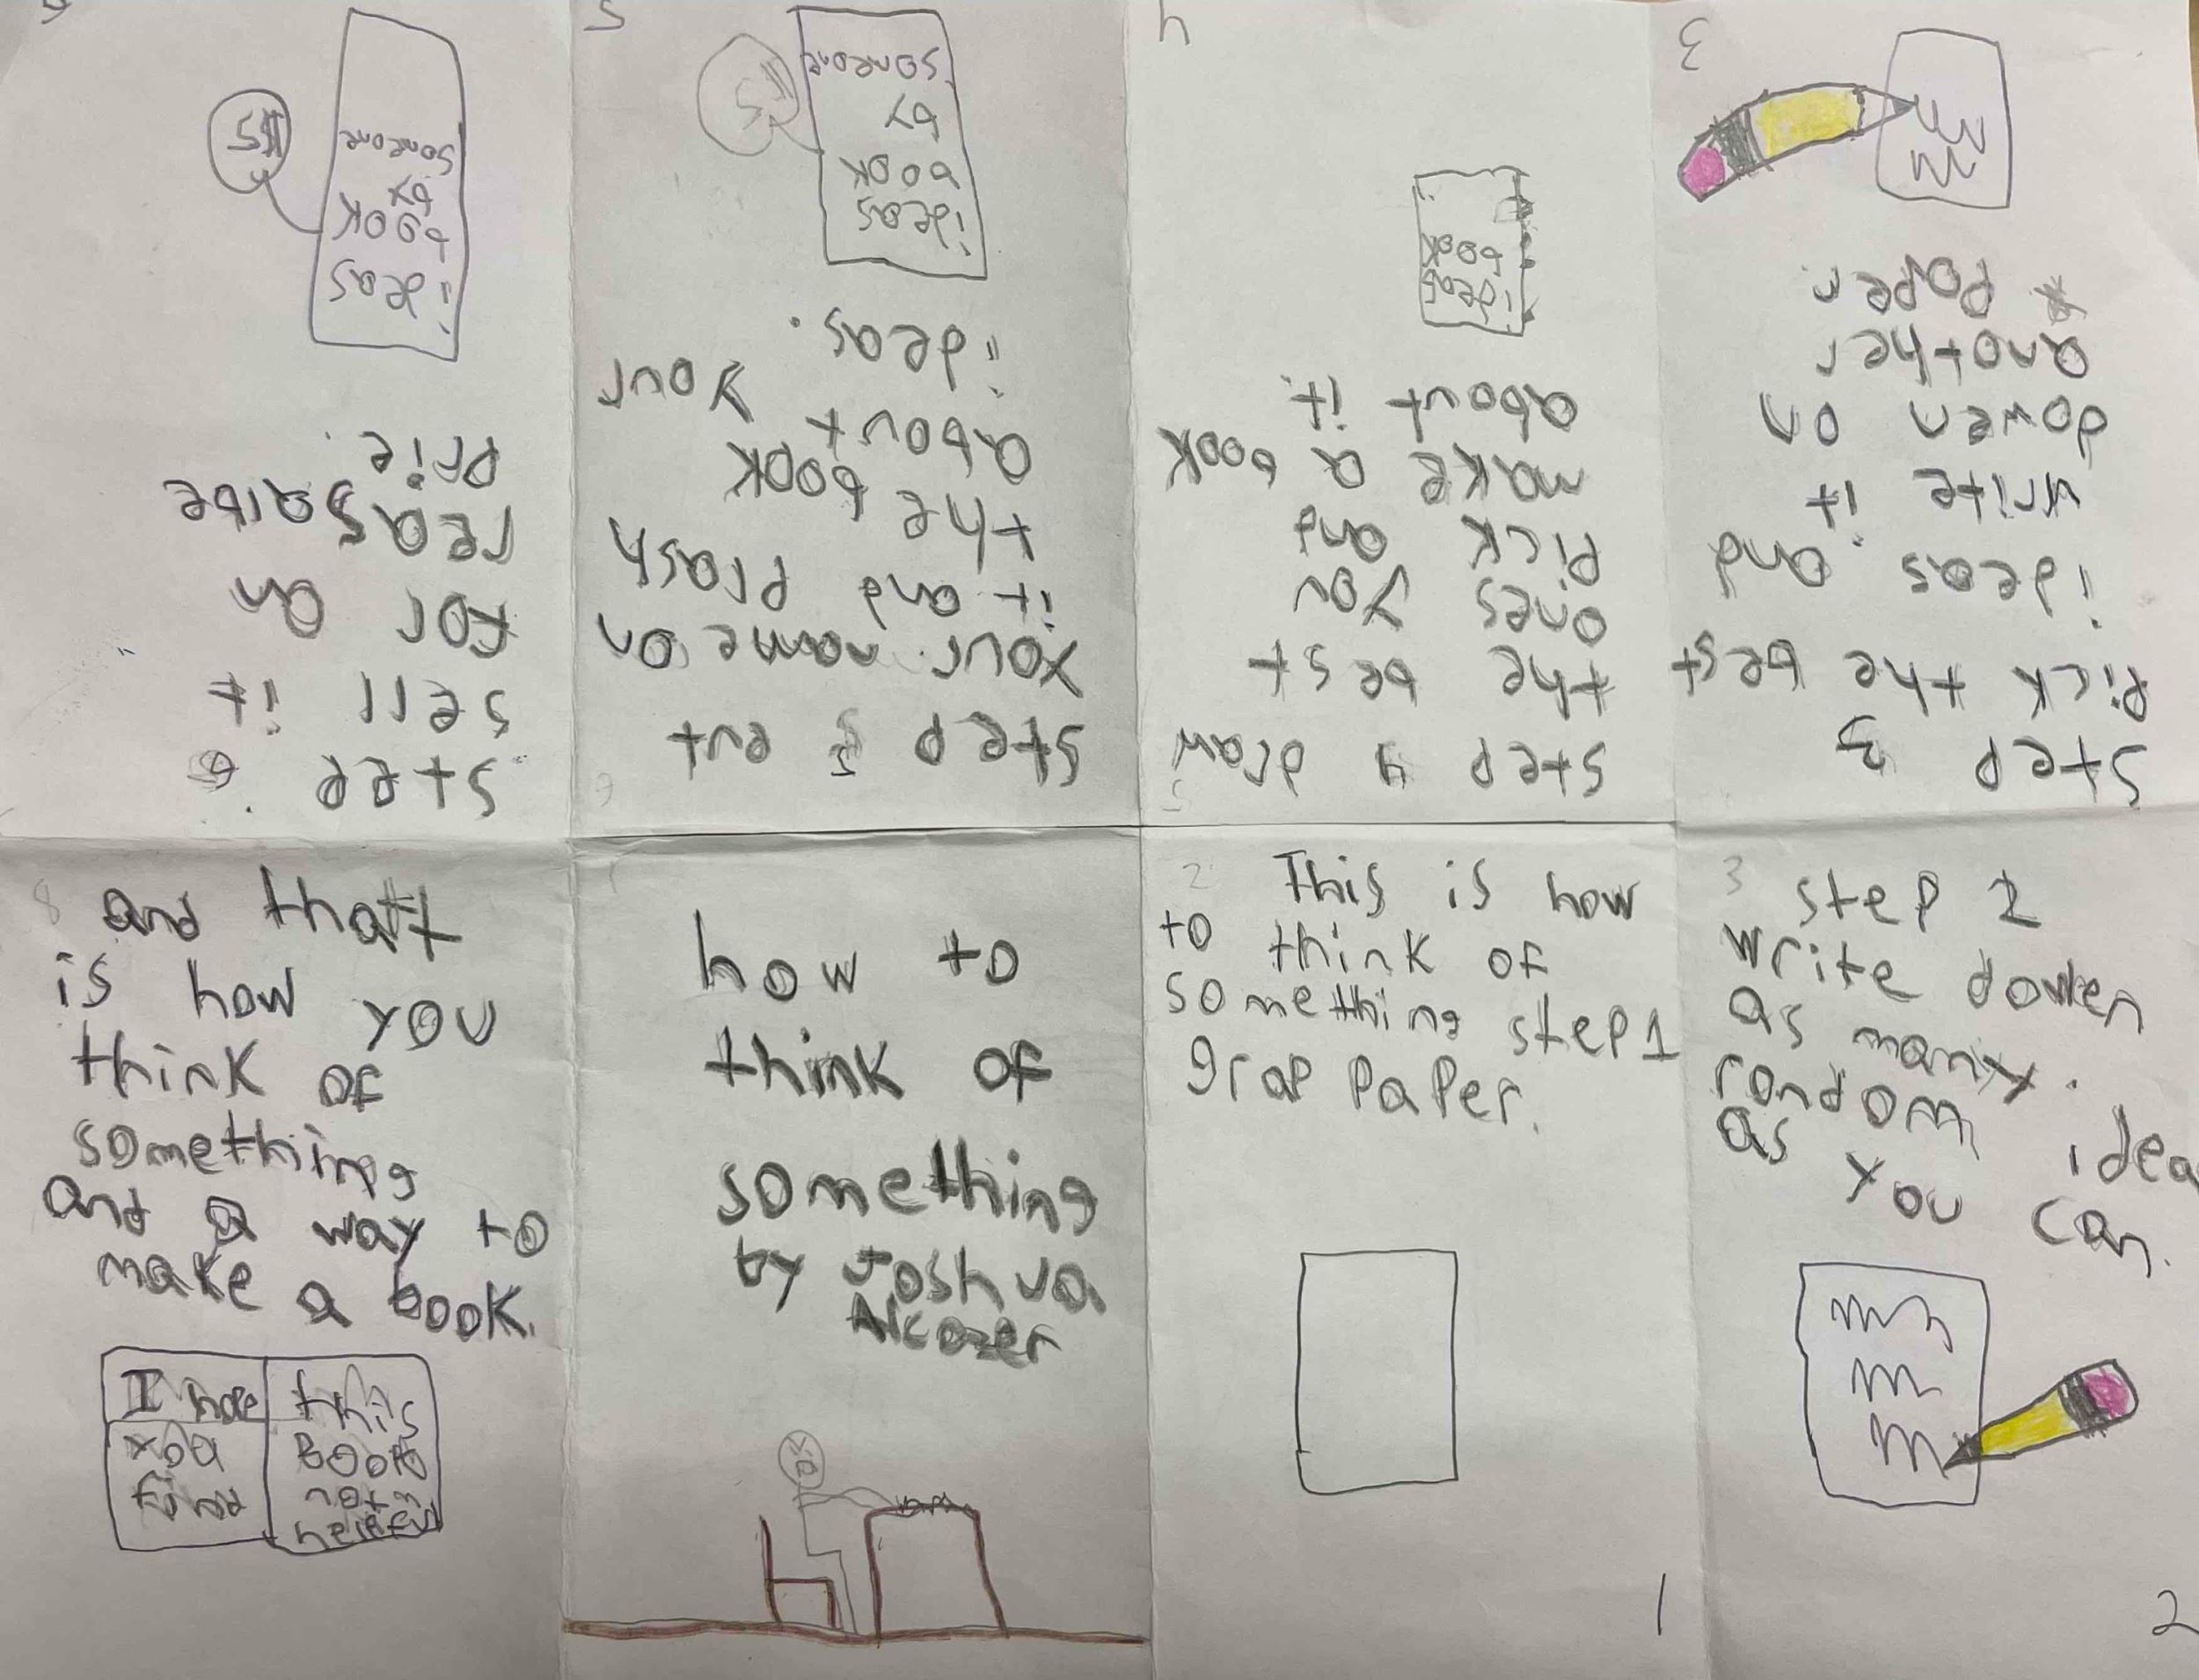 how to
think of
something
by Joshua
Alcozer
2
This is how
to think of
something step 1
grap paper.
1
3
step 2
write dowen
as many
random idea
as you can.
2
step 3
pick the best
ideas and
write it
dowen on
another
paper.
3
step 4 draw
the best
ones you
pick and
make a book
about it.
ideas
book
4
step 5 put
your name on
it and plash
the book
about your
ideas.
ideas
book
by
someone
$5
5
step 6
sell it
for an
reasaible
prie.
ideas
book
by
someone
$5
8
and that
is how you
think of
something
and a way to
make a book.
I hope
you
find
this
Book